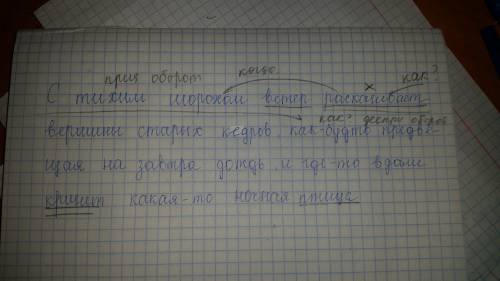 прич оборот кого? х как?
С тихим шорохом ветер раскачивает
как? дееприч оборот
вершины старых кедров как-будто предве
щая на завтра дождь и где-то вдали
кричит какая-то ночная птица